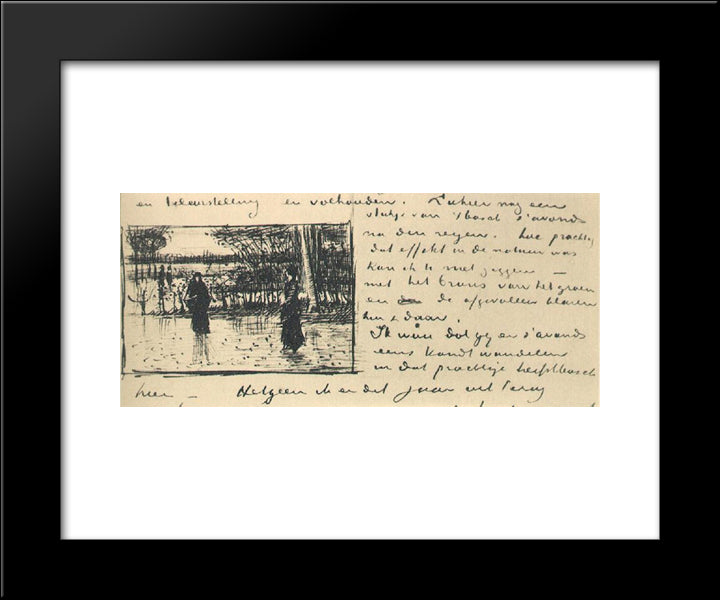 en teleurstelling en volhouden. Ziehier nog een
stukje van 't bosch 's avonds
na den regen. hoe prachtig
dat effekt in de natuur was
kan ik U niet zeggen —
met het brons van het groen
en de afgevallen blaren
hier & daar.
Ik wou dat gij er 's avonds
eens kondt wandelen
in dat prachtige herfstbosch
hier — Hetgeen ik er dit jaar uit